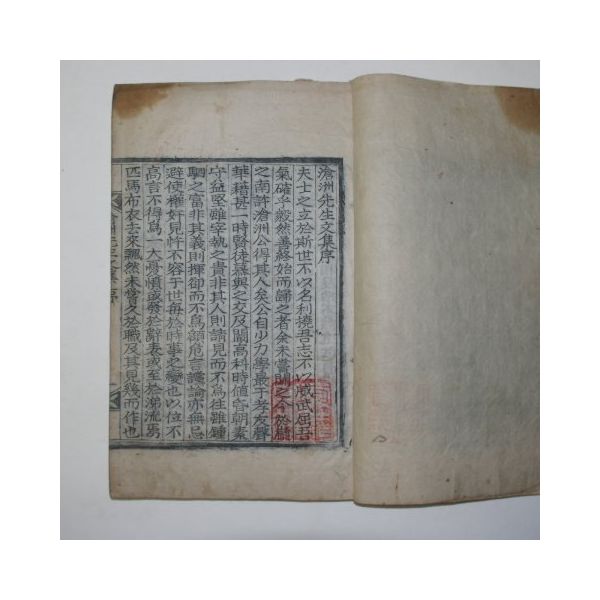 滄洲先生文集序
夫士之立於斯世不以名利撓吾志不以威武屈吾
氣確乎毅然善終始而歸之者余未嘗聞之今於
之南許滄洲公得其人矣公自少力學最于孝友聲
華籍甚一時賢徒慕與之交及闡高科時値昏朝素
守益堅雖宰執之貴非其人則請見而不爲往雖鍾
駟之富非其義則揮却而不爲顧危言讜論亦無忌
避使權奸見忤不容于世每於時事之變也以位不
高言不得爲一大憂憤或發於辭表或至於涕流焉
匹馬布衣去來飄然未嘗久於職及其見幾而作也
滄洲先生文集 序